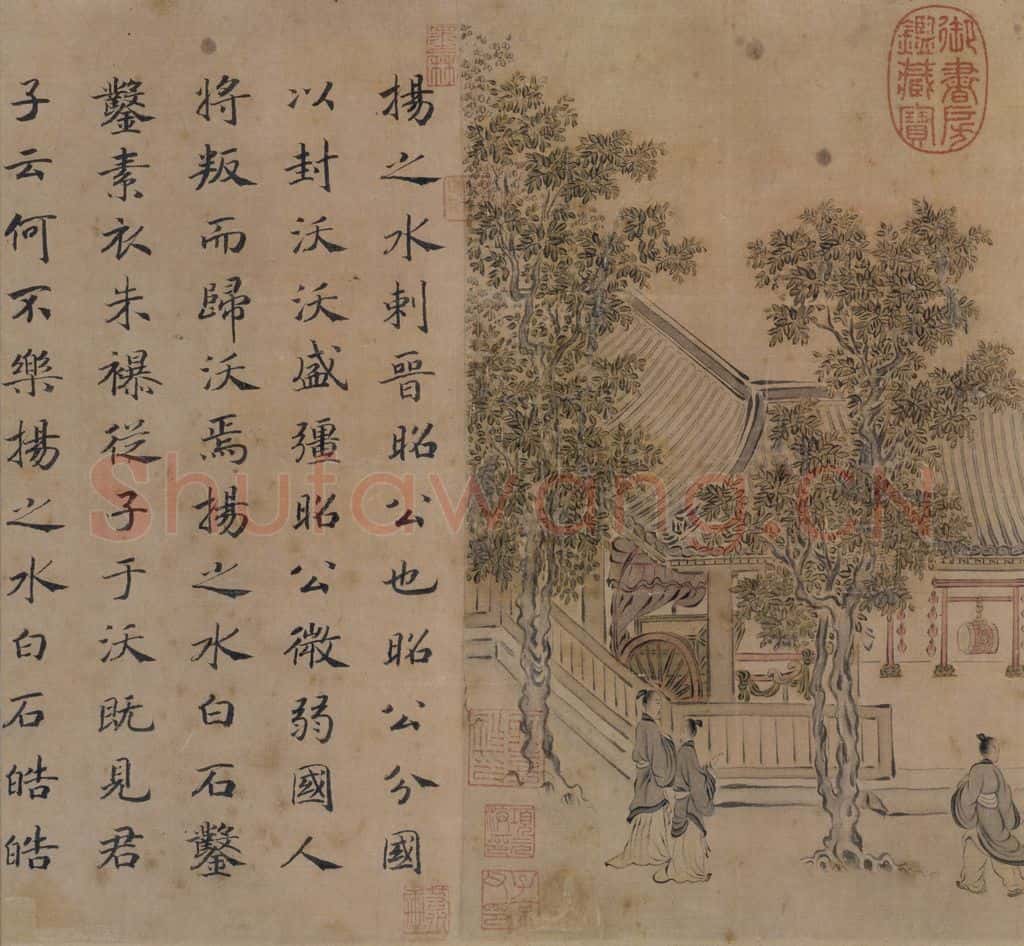 御書房
鑑藏寶
揚之水刺晉昭公也昭公分國
以封沃沃盛彊昭公微弱國人
將叛而歸沃焉揚之水白石鑿
鑿素衣朱襮從子于沃既見君
子云何不樂揚之水白石皓皓
Shufawang.CN